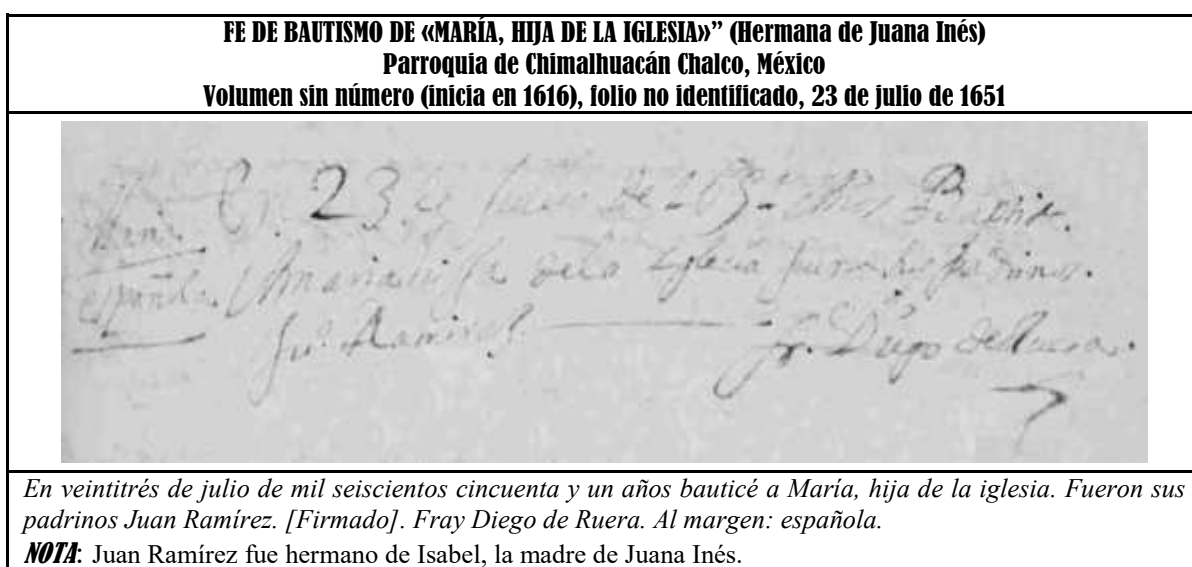 FE DE BAUTISMO DE «MARÍA, HIJA DE LA IGLESIA»” (Hermana de Juana Inés)
Parroquia de Chimalhuacán Chalco, México
Volumen sin número (inicia en 1616), folio no identificado, 23 de julio de 1651
23 de
española maria hija de la Iglesia fueron sus padrinos.
Ju.º Ramirez fr. Diego de
En veintitrés de julio de mil seiscientos cincuenta y un años bauticé a María, hija de la iglesia. Fueron sus
padrinos Juan Ramírez. [Firmado]. Fray Diego de Ruera. Al margen: española.
NOTA: Juan Ramírez fue hermano de Isabel, la madre de Juana Inés.